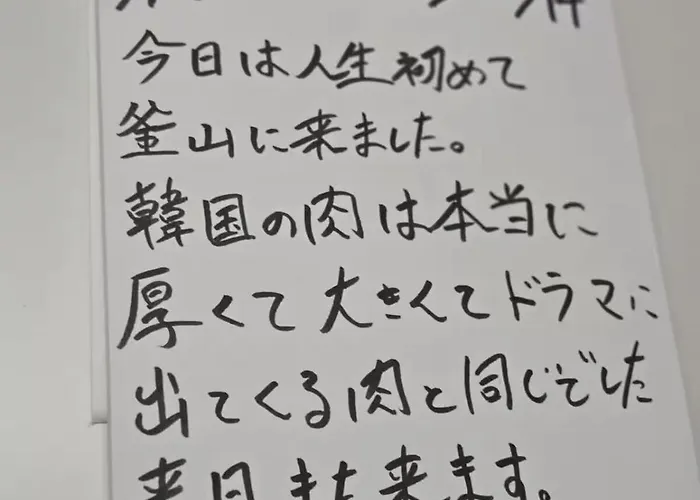 今日は人生初めて
釜山に来ました。
韓国の肉は本当に
厚くて大きくてドラマに
出てくる肉と同じでした
来月また来ます。